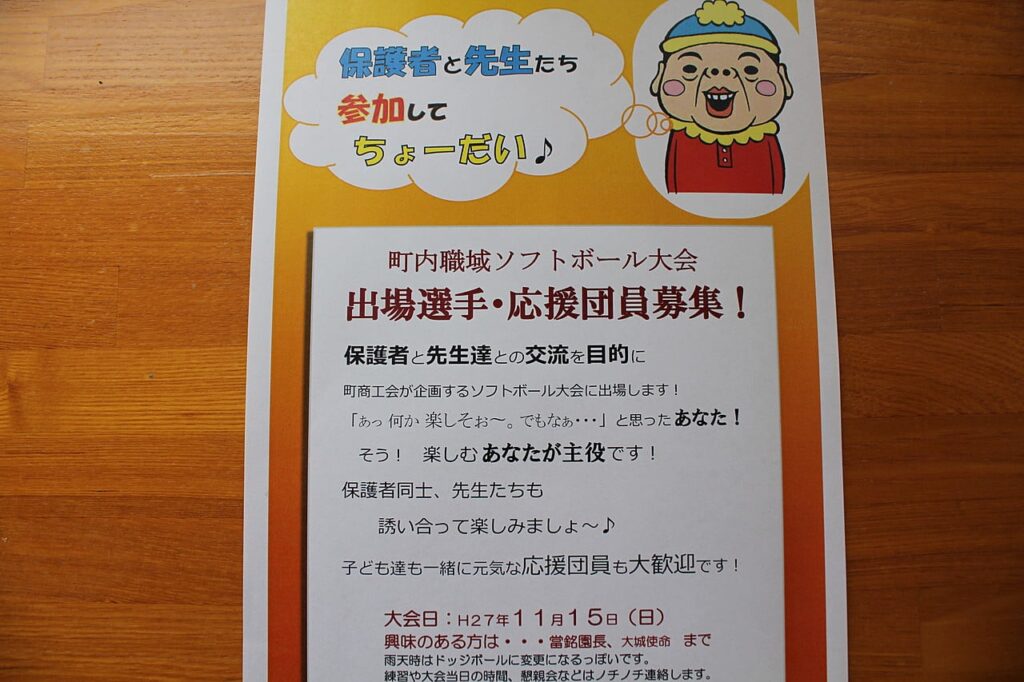 保護者と先生たち
参加して
ちょーだい♪
町内職域ソフトボール大会
出場選手・応援団員募集！
保護者と先生達との交流を目的に
町商工会が企画するソフトボール大会に出場します！
「あっ 何か 楽しそぉ～。でもなぁ・・・」と思ったあなた！
そう！ 楽しむあなたが主役です！
保護者同士、先生たちも
誘い合って楽しみましょ～♪
子ども達も一緒に元気な応援団員も大歓迎です！
大会日：H27年11月15日（日）
興味のある方は・・・當銘園長、大城使命 まで
雨天時はドッジボールに変更になるっぽいです。
練習や大会当日の時間、懇親会などはノチノチ連絡します。